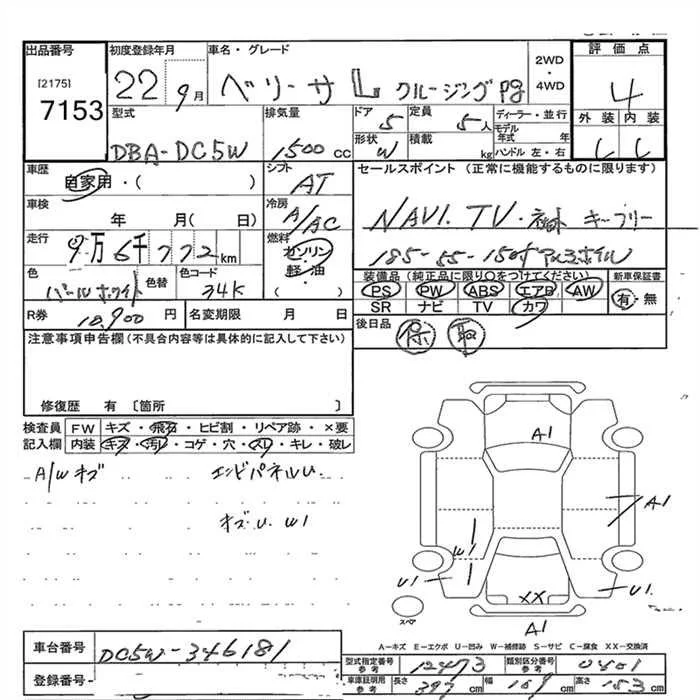 出品番号 初度登録年月 車名・グレード 2WD・4WD 評価点
[2175]
7153 22 9月 ベリーサ L クルージングPg 4
型式 排気量 ドア 5 定員 5人 ディーラー・並行 外装 内装
DBA-DC5W 1500cc 形状 W 積載 kg モデル年式 年 ハンドル 左・右 C C
車歴 自家用・( ) シフト AT セールスポイント (正常に機能するものに限ります)
車検 年 月( 日) 冷房 A/AC NAVI. TV. キーフリー
走行 9万6千772km 燃料 ガソリン・軽油・( ) 185-55-15吋アルミホイル
色 パールホワイト 色替 色コード 34K 装備品 (純正品に限り○をつけてください) 新車保証書
PS PW ABS エアB AW 有・無
SR ナビ TV カワ
R券 10,900円 名変期限 月 日 後日品 保 取
注意事項申告欄 (不具合内容等は具体的に記入して下さい)
修復歴 有 〔箇所 〕
検査員 FW キズ・飛石・ヒビ割・リペア跡・×要
記入欄 内装 キズ・汚れ・コゲ・穴・スレ・キレ・破レ
A/Wキズ エンドパネルU.
U. W1
A1
A1
W1
U1
U1.
XX
スペア
A1
A-キズ E-エクボ U-凹み W-補修跡 S-サビ C-腐食 XX-交換済
車台番号 DC5W-346181 型式指定番号 参考 12473 類別区分番号 参考 0401
登録番号 車庫証明用 参考 長さ 397cm 幅 169cm 高さ 153cm